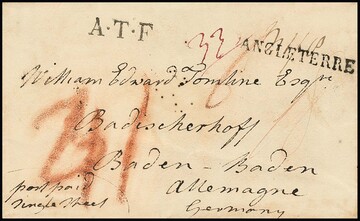 A·T·F
33
ANGLETERRE
William Edward Tomline Esqre
Badischerhoff
Baden-Baden
Allemagne
Germany
post paid